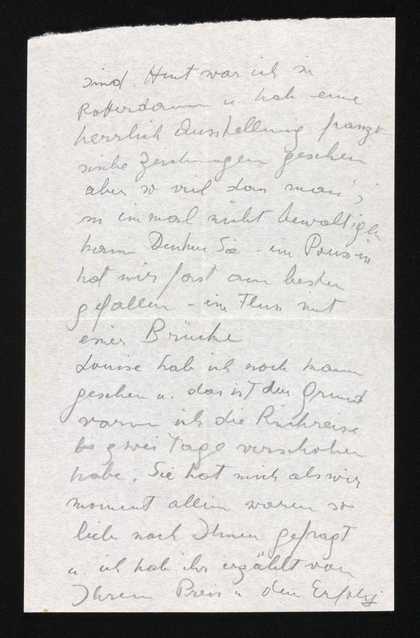 sind. Heut war ich in
Rotterdam u. hab eine
herrlich Ausstellung franzö
sische Zeichnungen gesehen
aber so viel dass man's
in einmal nicht bewältigen
kann Denken Sie - ein Poussin
hat mir fast am besten
gefallen - ein Fluss mit
einer Brücke
Louise hab ich noch kaum
gesehen u. das ist der Grund
warum ich die Rückreise
bis zwei Tage verschoben
habe. Sie hat mich als wir
moment allein waren so
lieb nach Ihnen gefragt
u ich hab ihr erzählt von
Ihrem Preis u dem Erfolg